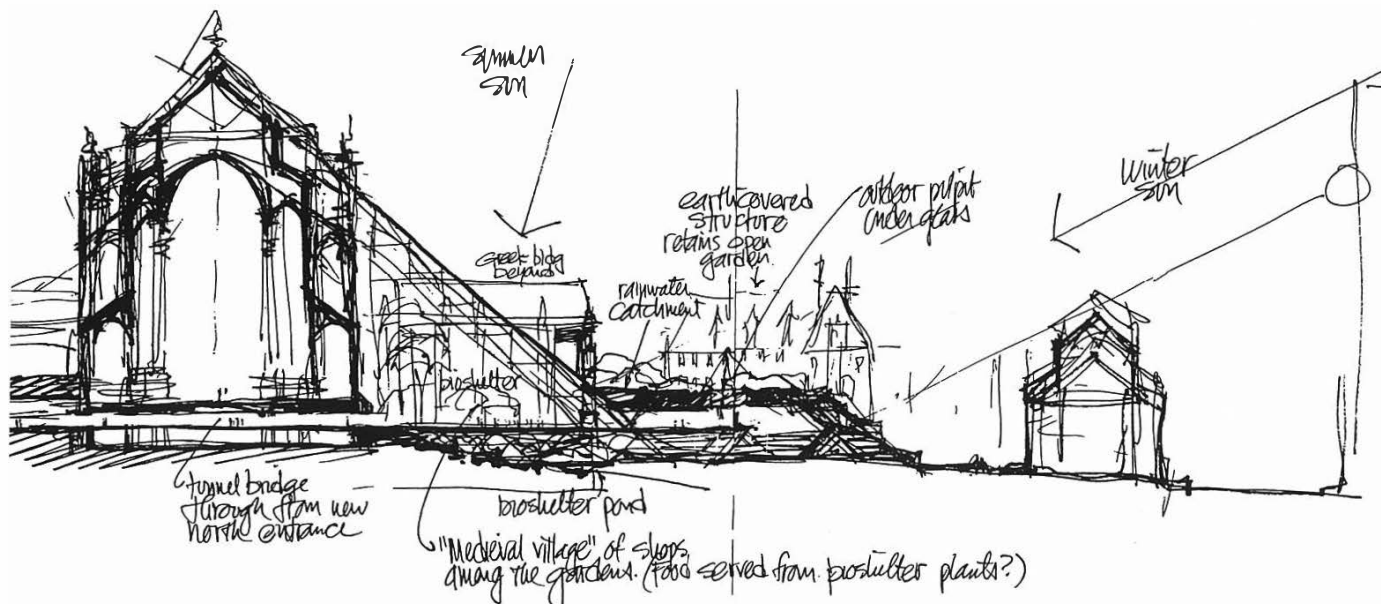 summer
sun
winter
sun
earth covered
structure
retains open
garden
outdoor pulpit
under glass
Greek bldg
beyond
rainwater
catchment
bioshelter
tunnel bridge
through from new
north entrance
bioshelter pond
"Medieval village" of shops
among the gardens. (Food served from bioshelter plants?)